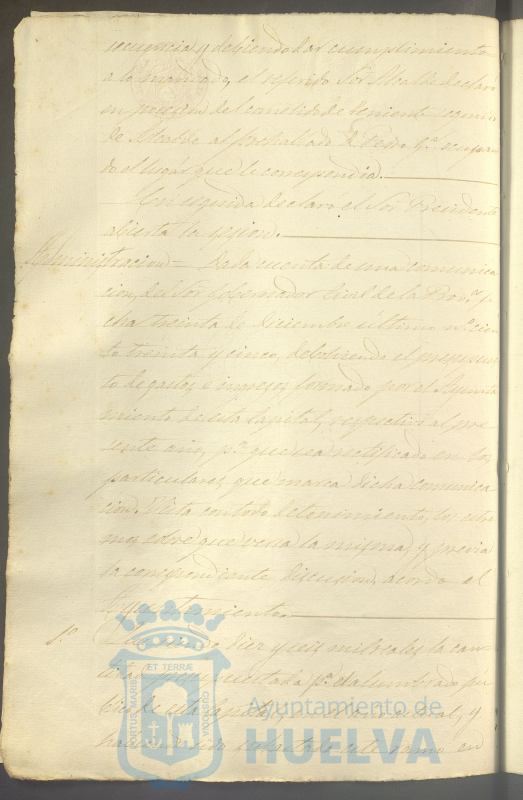 secuencia y debiendo dar cumplimiento
a lo mandado, el referido Sor Alcalde declaró
en posesion del cometido de teniente
de Alcalde al D. Pedro ocupan
do el lugar que le correspondia.
En seguida declaró el Sor Presidente
abierta la sesion.
Administracion = Dada cuenta de una comunica
cion, del Sor Gobernador Civil de la Prova. fe
cha treinta de Diciembre ultimo no. cien
to treinta y cinco, debolviendo el presupues
to de gastos e ingresos formado por el Ayunta
miento de esta Capital, respectivo al pre
sente año, pa. que sea rectificado en los
particulares, que marca dicha comunica
cion. Vista con todo detenimiento, los estre
mos sobre que versa la misma, y previa
la correspondiente discusion, acordó el
Ayuntamiento.
1o. diez y seis mil reales la can
tidad presupuestada pa. el alumbrado pu
blico de esta Capital, y
subastado este ramo en
PORTUS MARIS ET TERRÆ CUSTODIA
Ayuntamiento de
HUELVA